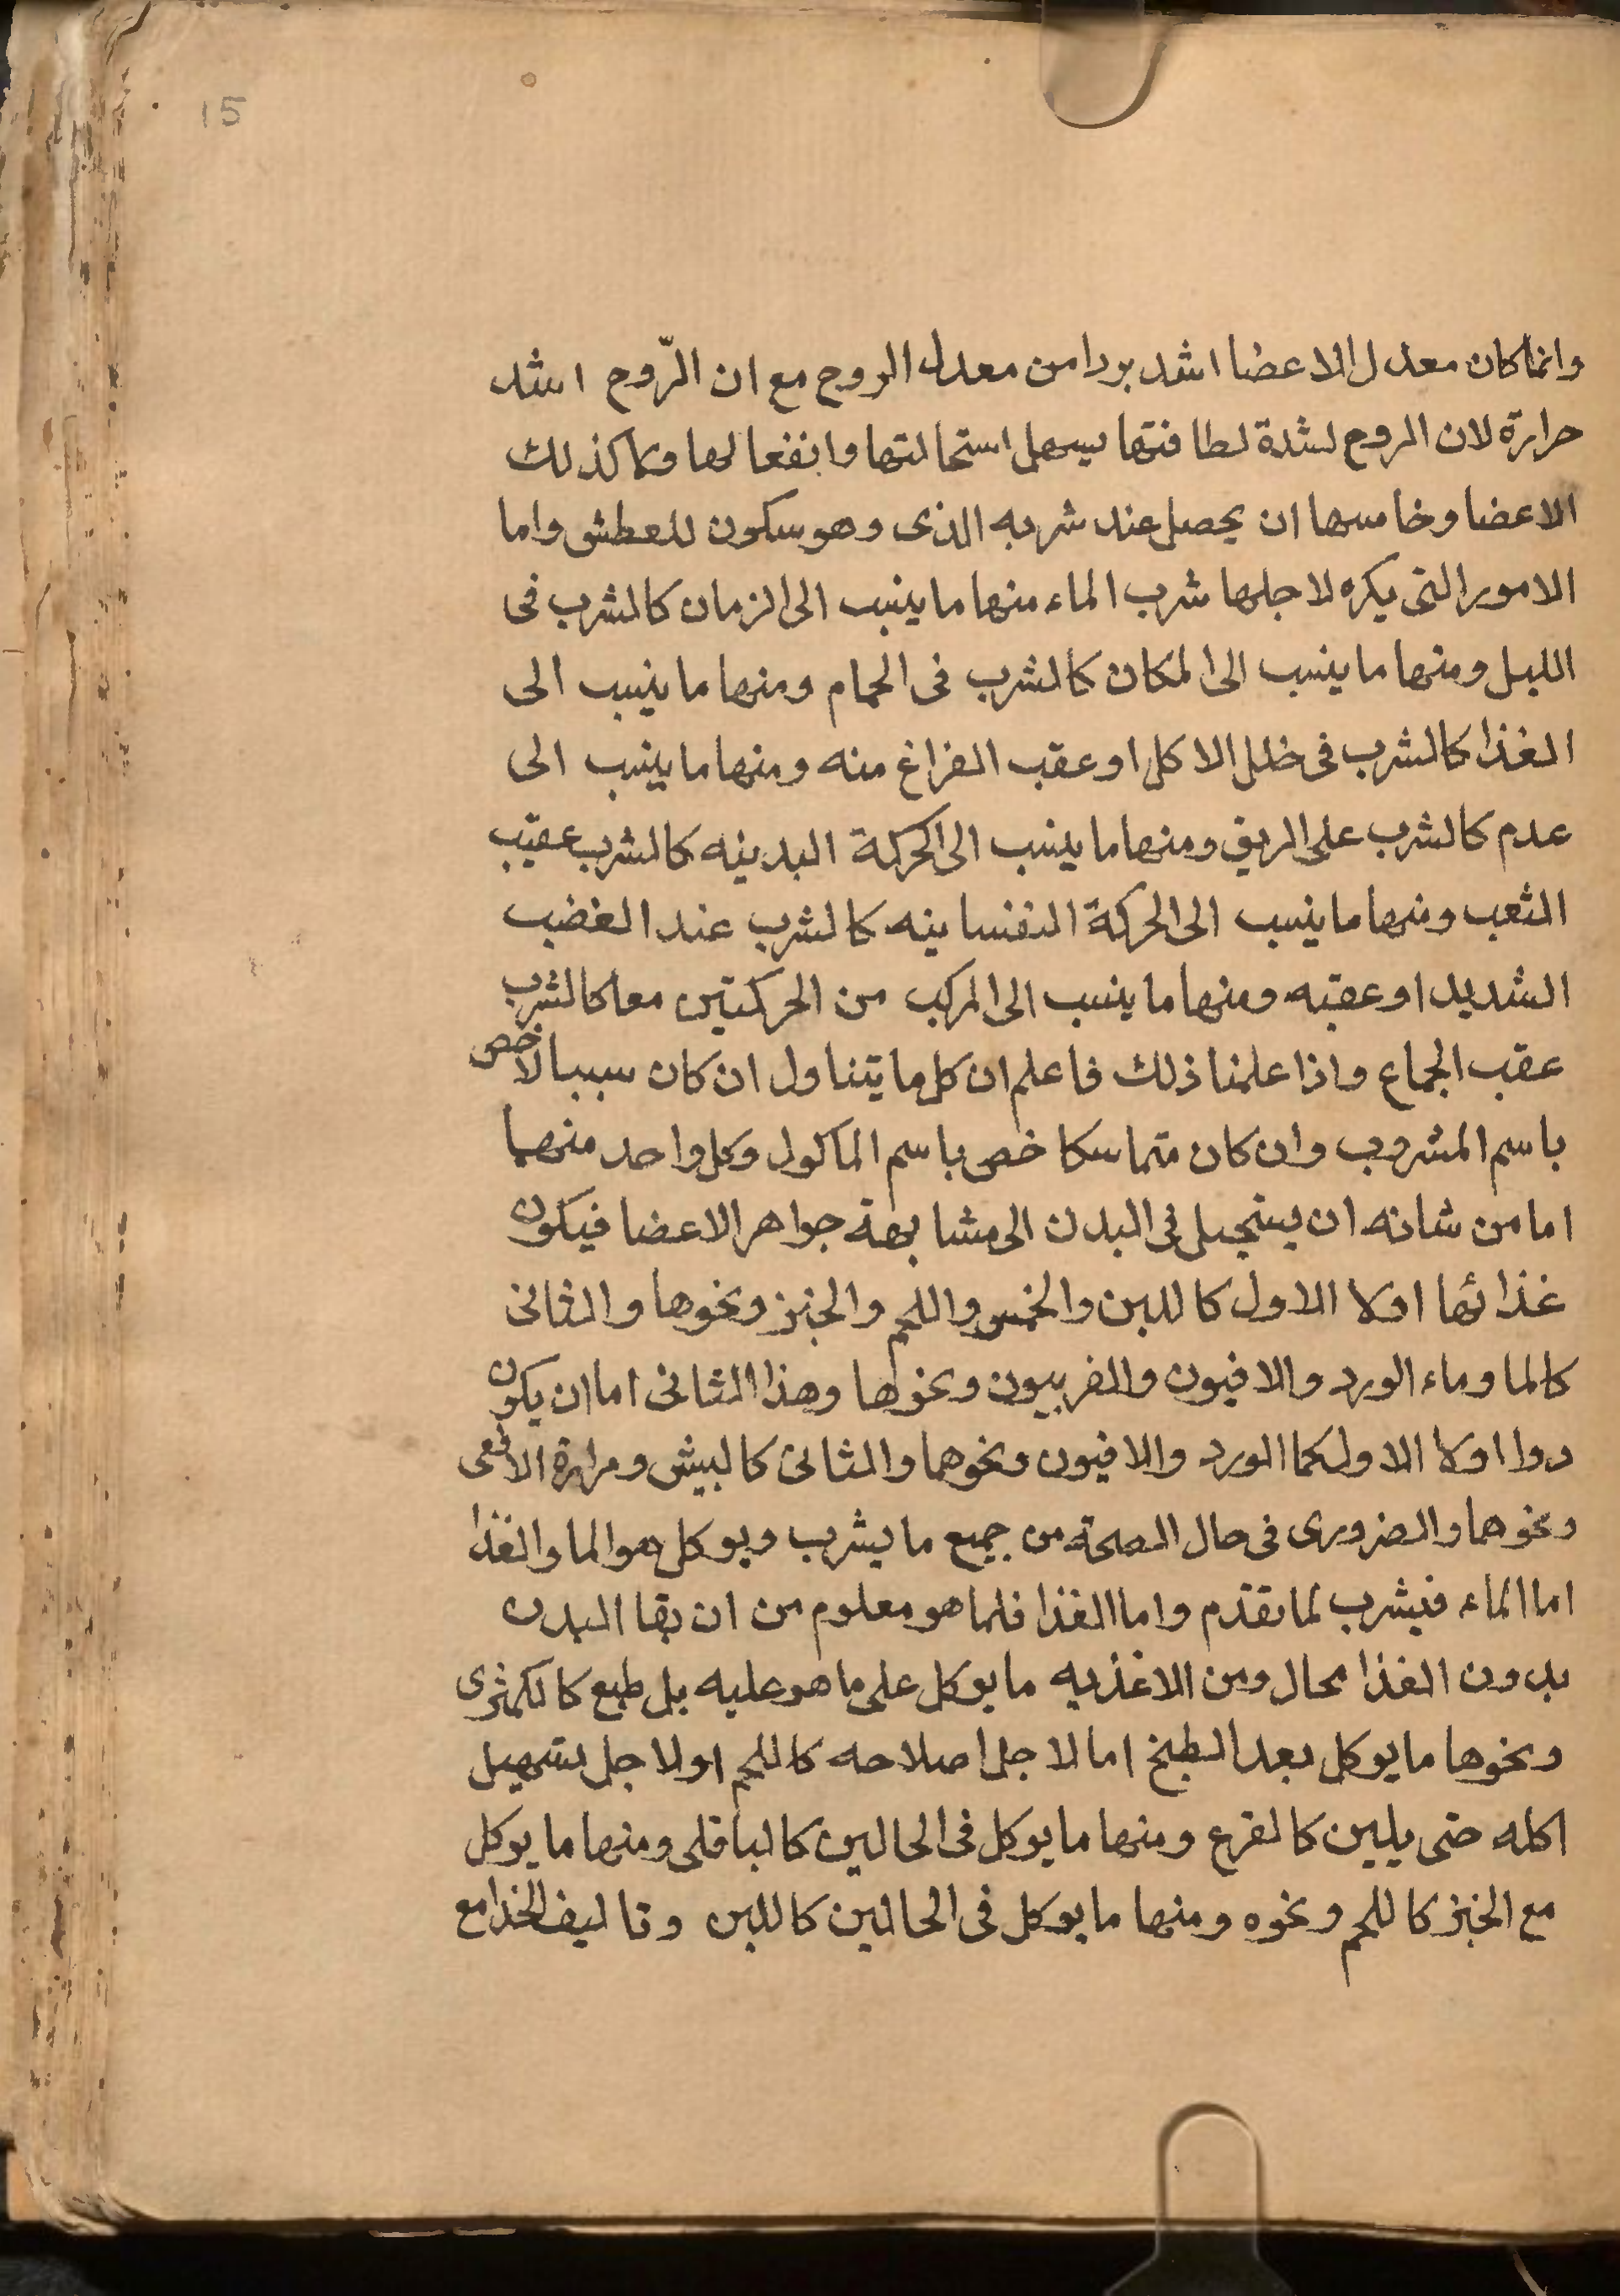 15
وانما كان معدل الاعضا اشد بردا من معدل الروح مع ان الرّوح اشد
حرارة لان الروح لشدة لطافتها يسهل استحالتها وانفعالها وكما كذلك
الاعضا وخامسها ان يحصل عند شربه الذى وهو سكون للعطش واما
الامور التى يكره لاجلها شرب الماء منها ما ينسب الى الزمان كالشرب فى
الليل ومنها ما ينسب الى المكان كالشرب فى الحمام ومنها ما ينسب الى
الغذا كالشرب فى خلل الاكل او عقب الفراغ منه ومنها ما ينسب الى
عدم كالشرب على الريق ومنها ما ينسب الى الحركة البدينه كالشرب عقيب
التعب ومنها ما ينسب الى الحركة النفسانيه كالشرب عند الغضب
الشديد او عقبه ومنها ما ينسب الى المركب من الحركتين معا كالشرب
عقب الجماع واذا علمنا ذلك فاعلم ان كل ما يتناول ان كان سببا لاخص
باسم المشروب وان كان متماسكا خص باسم الماكول وكل واحد منهما
اما من شانه ان يستحيل فى البدن الى مشابهة جواهر الاعضا فيكون
غذائها اولا الاول كاللبن والخس واللحم والخبز ونحوها والثانى
كالما وماء الورد والافيون والفربيون ونحوها وهذا الثانى اما ان يكون
دوا اولا الاول كما الورد والافيون ونحوهما والثانى كالبيش ومرارة الافعى
ونحوهما والضرورى فى حال الصحة من جميع ما يشرب ويوكل هو الما والغذا
اما الماء فيشرب لما تقدّم واما الغذا فلما هو معلوم من ان بقا البدن
بدون الغذا محال ومن الاغذيه ما يوكل على ما هو عليه بل طبع كالكمثرى
ونحوها ما يوكل بعد الطبخ اما لاجل اصلاحه كاللحم او لاجل تسهيل
اكله حتى يلين كالقرع ومنها ما يوكل فى الحالين كالباقلى ومنها ما يوكل
مع الخبز كاللحم ونحوه ومنها ما يوكل فى الحالين كاللبن وتاليف الخذامع